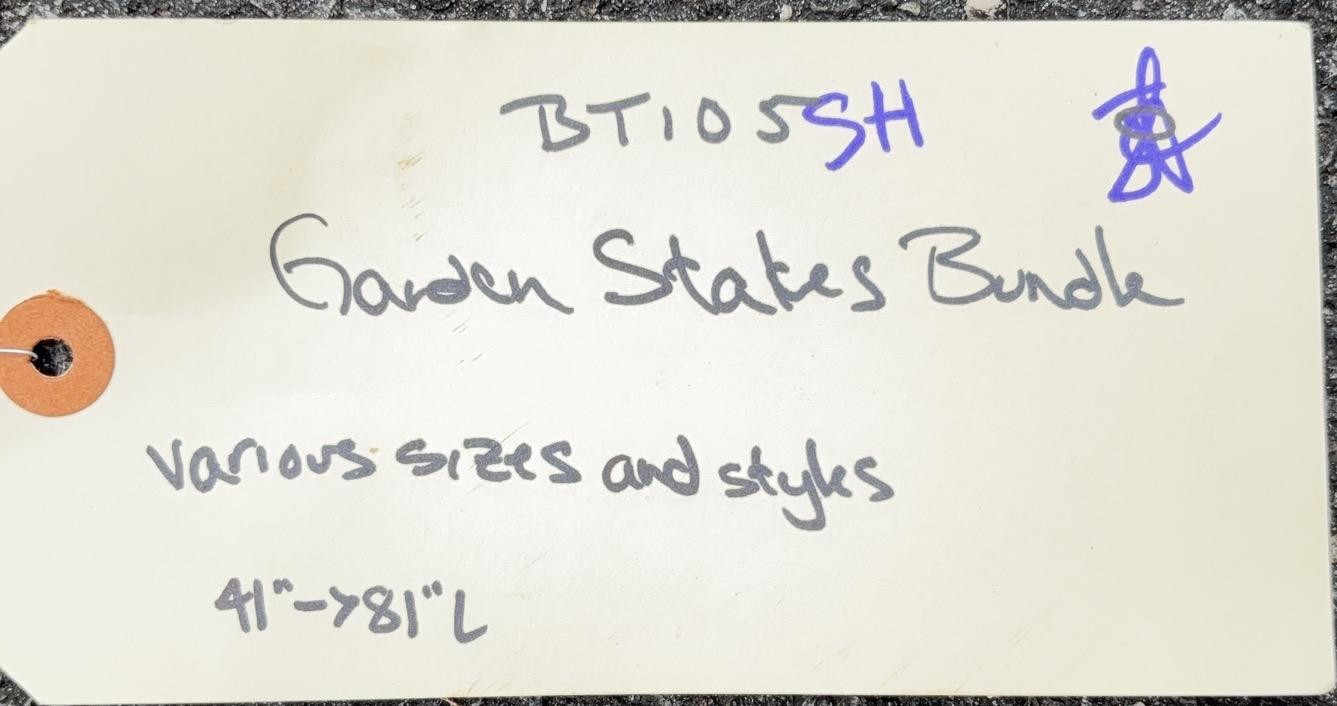 BT105SH
Garden Stakes Bundle
various sizes and styles
41"->81" L